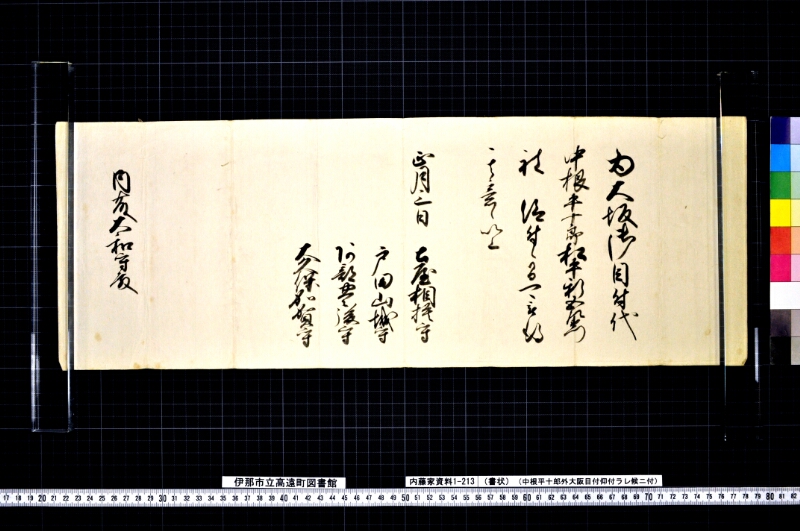 為大坂御目付代
中根平十郎松平彦兵衛
被 仰付候
以上
正月二日 土屋相模守
戸田山城守
阿部豊後守
大久保加賀守
内藤大和守殿
伊那市立高遠町図書館
内藤家資料1-213 (書状) (中根平十郎外大阪目付仰付ラレ候ニ付)